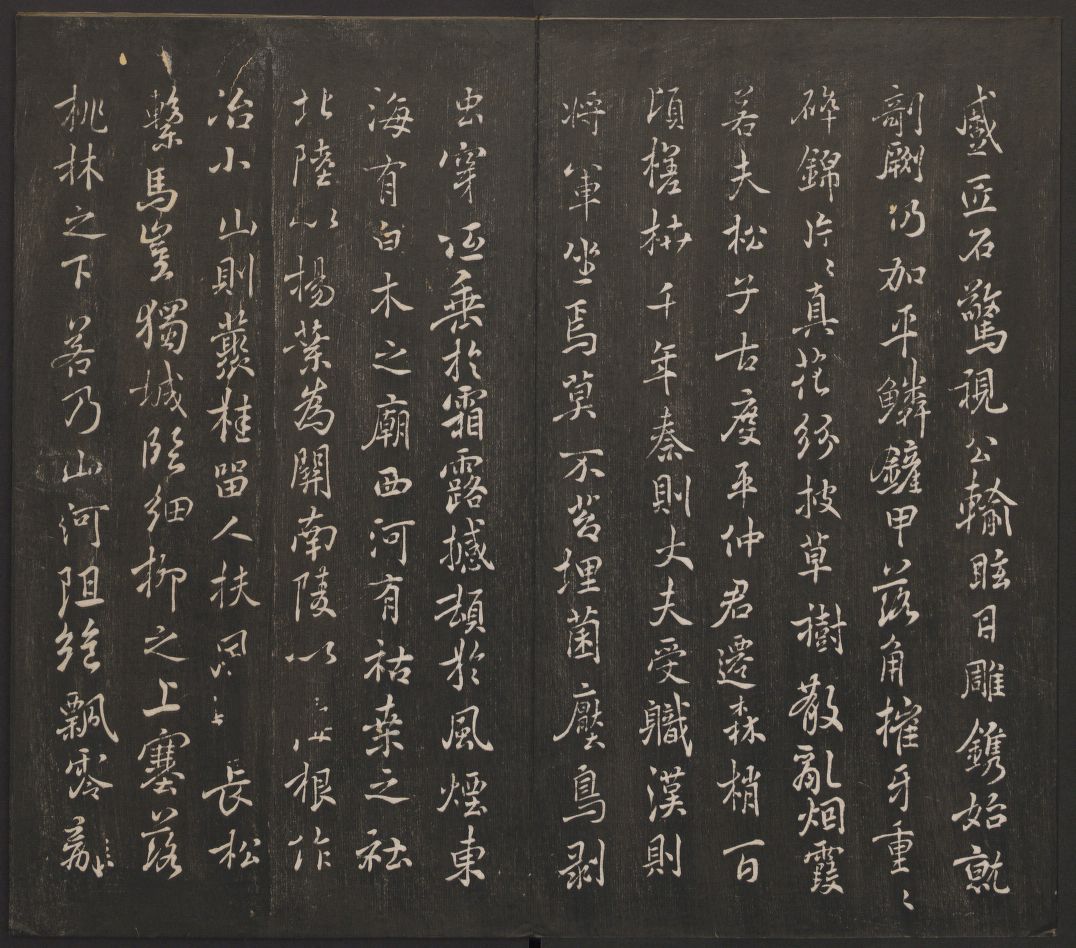 蹙匠石驚視公輸眩目雕鐫始就
剞劂仍加平鱗鏟甲落角摧牙重〻
碎錦片〻真花紛披草樹散亂烟霞
若夫松子古度平仲君遷森梢百
頃槎枿千年秦則大夫受職漢則
將軍坐焉莫不苔埋菌壓鳥剥
虫穿低垂於霜露撼頓於風煙東
海有白木之廟西河有枯桒之社
北陸以楊葉為關南陵以梅根作
冶小山則叢桂留人扶風長松
繫馬豈獨城臨細柳之上塞落
桃林之下若乃山河阻絶飄零離